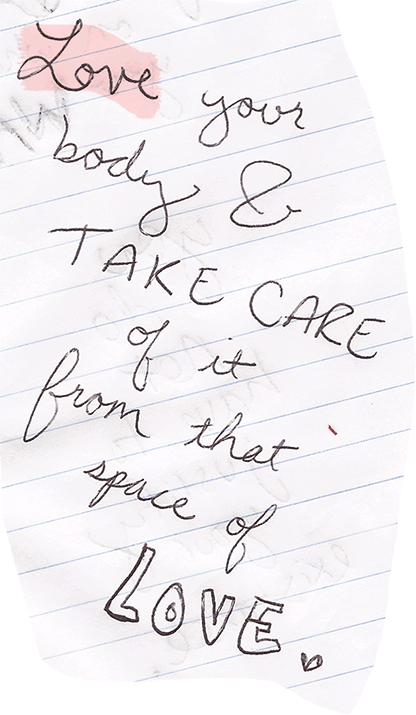 Love your
body &
TAKE CARE
of it
from that
space of
LOVE.